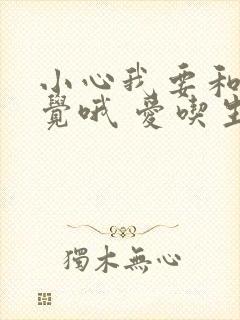 小心我要和
覺哦 愛喫
獨木無心